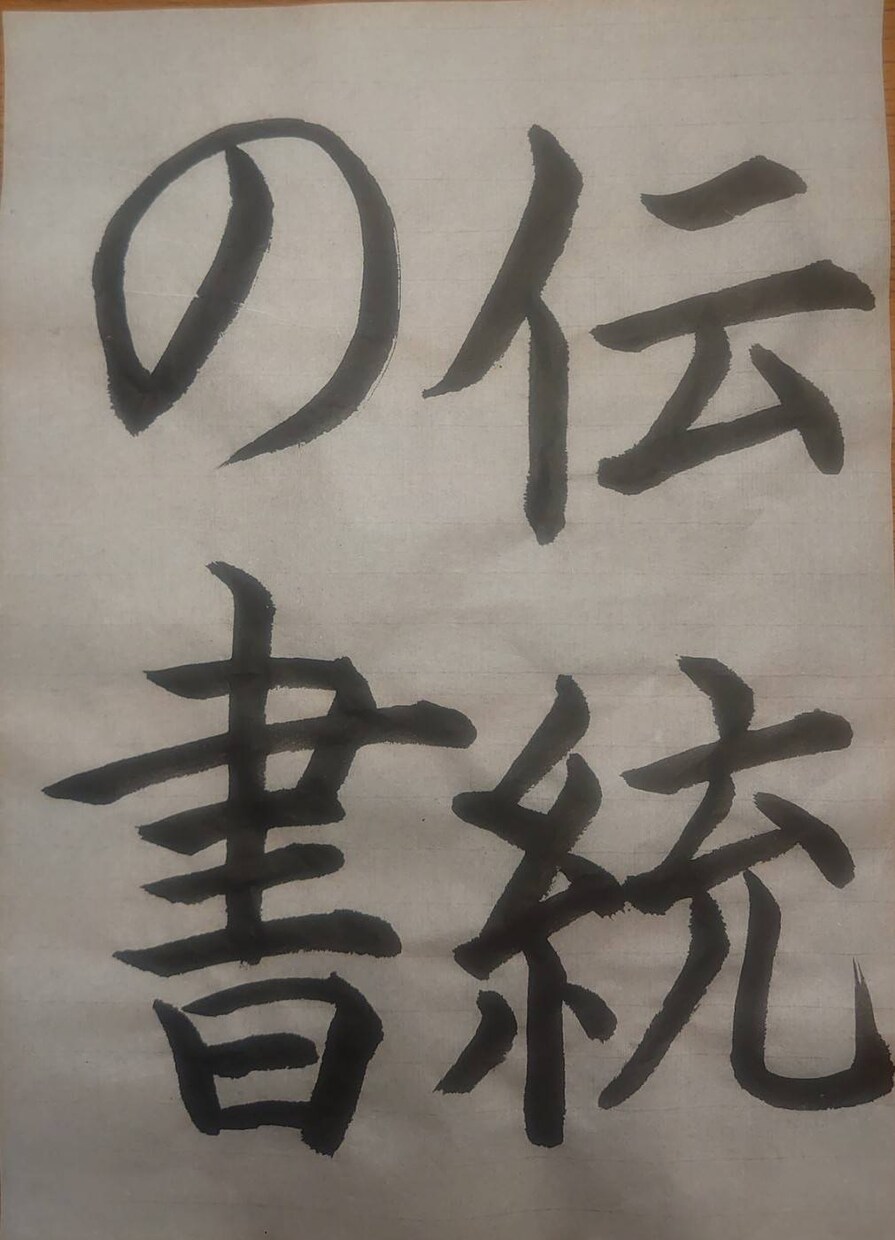 伝統
の書